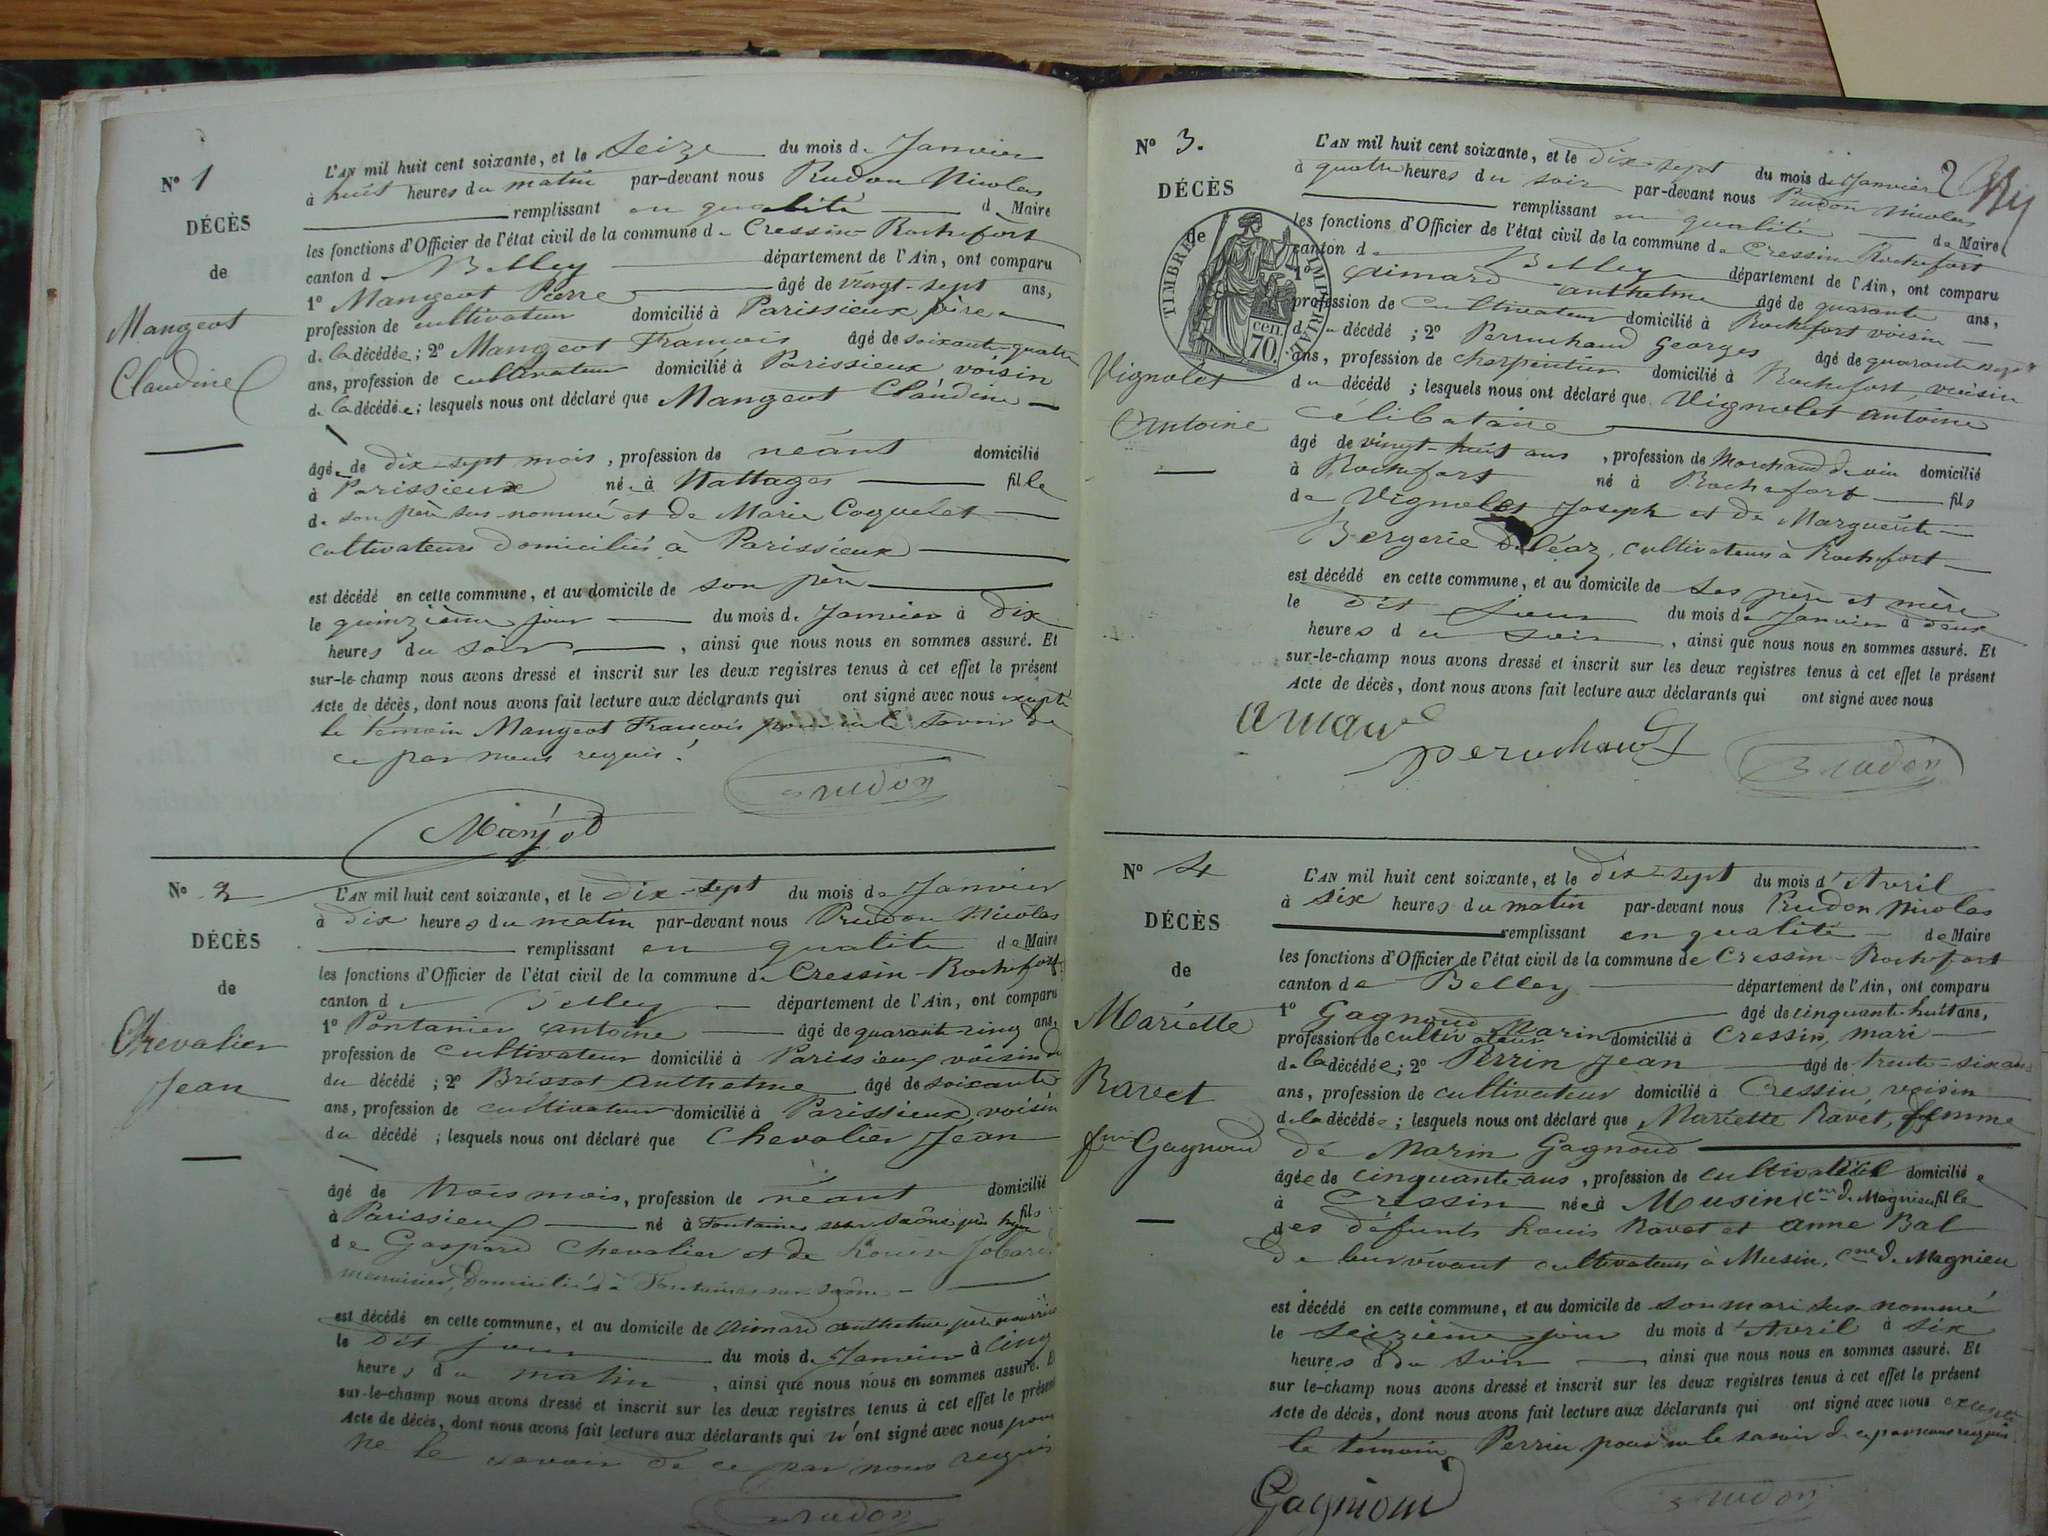 N° 1
DÉCÈS
de
Mangeot
Claudine
L'AN mil huit cent soixante, et le Seize du mois de Janvier
à huit heures du matin par-devant nous Prudon Nicolas
remplissant en qualité d Maire
les fonctions d'Officier de l'état civil de la commune de Cressin-Rochefort
canton d Belley département de l'Ain, ont comparu
1° Mangeot Pierre âgé de vingt-sept ans,
profession de cultivateur domicilié à Parissieux père
de la décédée ; 2° Mangeot Francois âgé de soixante-quatre
ans, profession de cultivateur domicilié à Parissieux voisin
de la décédée ; lesquels nous ont déclaré que Mangeot Claudine
âgée de dix-sept mois, profession de néant domicilié
à Parissieux née à Nattages fille
de son père sus-nommé et de Marie Coquelet
cultivateurs domiciliés à Parissieux
est décédé en cette commune, et au domicile de son père
le quinzième jour du mois de Janvier à dix
heures du soir, ainsi que nous nous en sommes assuré. Et
sur-le-champ nous avons dressé et inscrit sur les deux registres tenus à cet effet le présent
Acte de décès, dont nous avons fait lecture aux déclarants qui ont signé avec nous excepté
le témoin Mangeot Francois pour ne le savoir de
ce par nous requis.
Prudon
Manjod
N° 2
DÉCÈS
de
Chevalier
Jean
L'AN mil huit cent soixante, et le dix-sept du mois de Janvier
à dix heures du matin par-devant nous Prudon Nicolas
remplissant en qualité de Maire
les fonctions d'Officier de l'état civil de la commune de Cressin-Rochefort
canton de Belley département de l'Ain, ont comparu
1° Pontanier antoine âgé de quarante-cinq ans,
profession de cultivateur domicilié à Parissieux voisin du
du décédé ; 2° Brissot anthelme âgé de soixante
ans, profession de cultivateur domicilié à Parissieux voisin
du décédé ; lesquels nous ont déclaré que Chevalier Jean
âgé de trois mois, profession de néant domicilié
à Parissieux né à Fontaines sur Saône près Lyon fils
de Gaspard Chevalier et de Louise
menuisier, domiciliés à Fontaines-sur-Saône
est décédé en cette commune, et au domicile de aimard anthelme père nourricier
le Dit jour du mois de Janvier à cinq
heures du matin, ainsi que nous nous en sommes assuré. Et
sur-le-champ nous avons dressé et inscrit sur les deux registres tenus à cet effet le présent
Acte de décès, dont nous avons fait lecture aux déclarants qui n'ont signé avec nous pour
ne le savoir de ce par nous requis
Prudon
2
N° 3.
DÉCÈS
de
TIMBRE IMPÉRIAL
70 cen.
Vignolet
Antoine
L'AN mil huit cent soixante, et le dix-sept du mois de Janvier
à quatre heures du soir par-devant nous Prudon Nicolas
remplissant en qualité de Maire
les fonctions d'Officier de l'état civil de la commune de Cressin Rochefort
canton de Belley département de l'Ain, ont comparu
1° aimard anthelme âgé de quarante ans,
profession de cultivateur domicilié à Rochefort voisin
du décédé ; 2° Perruchaud Georges âgé de quarante sept
ans, profession de charpentier domicilié à Rochefort, voisin
du décédé ; lesquels nous ont déclaré que Vignolet antoine
célibataire
âgé de vingt-huit ans, profession de Marchand de vin domicilié
à Rochefort né à Rochefort fils
de Vignolet Joseph et de Marguerite
Bergerie cultivateurs à Rochefort
est décédé en cette commune, et au domicile de ses père et mère
le Dit jour du mois de Janvier à deux
heures du soir, ainsi que nous nous en sommes assuré. Et
sur-le-champ nous avons dressé et inscrit sur les deux registres tenus à cet effet le présent
Acte de décès, dont nous avons fait lecture aux déclarants qui ont signé avec nous
Peruchaud
Prudon
N° 4
DÉCÈS
de
Mariette
Ravet
fme Gagnoud
L'AN mil huit cent soixante, et le dix-sept du mois d'Avril
à six heures du matin par-devant nous Prudon Nicolas
remplissant en qualité de Maire
les fonctions d'Officier de l'état civil de la commune de Cressin-Rochefort
canton de Belley département de l'Ain, ont comparu
1° Gagnoud Marin âgé de cinquante-huit ans,
profession de cultivateur domicilié à Cressin, mari
de la décédée ; 2° Perrin Jean âgé de trente-six ans
ans, profession de cultivateur domicilié à Cressin, voisin
de la décédée ; lesquels nous ont déclaré que Mariette Ravet, femme
de Marin Gagnoud
âgée de cinquante ans, profession de domiciliée
à Cressin née à Musin cne de Magnieu fille
des défunts Louis Ravet et Anne Bal
de leur vivant cultivateurs à Musin, cne de Magnieu
est décédé en cette commune, et au domicile de son mari sus-nommé
le seizième jour du mois d'Avril à six
heures du soir ainsi que nous nous en sommes assuré. Et
sur le-champ nous avons dressé et inscrit sur les deux registres tenus à cet effet le présent
Acte de décès, dont nous avons fait lecture aux déclarants qui ont signé avec nous excepté
le témoin Perrin pour ne le savoir de ce par nous requis.
Gagnioud
Prudon